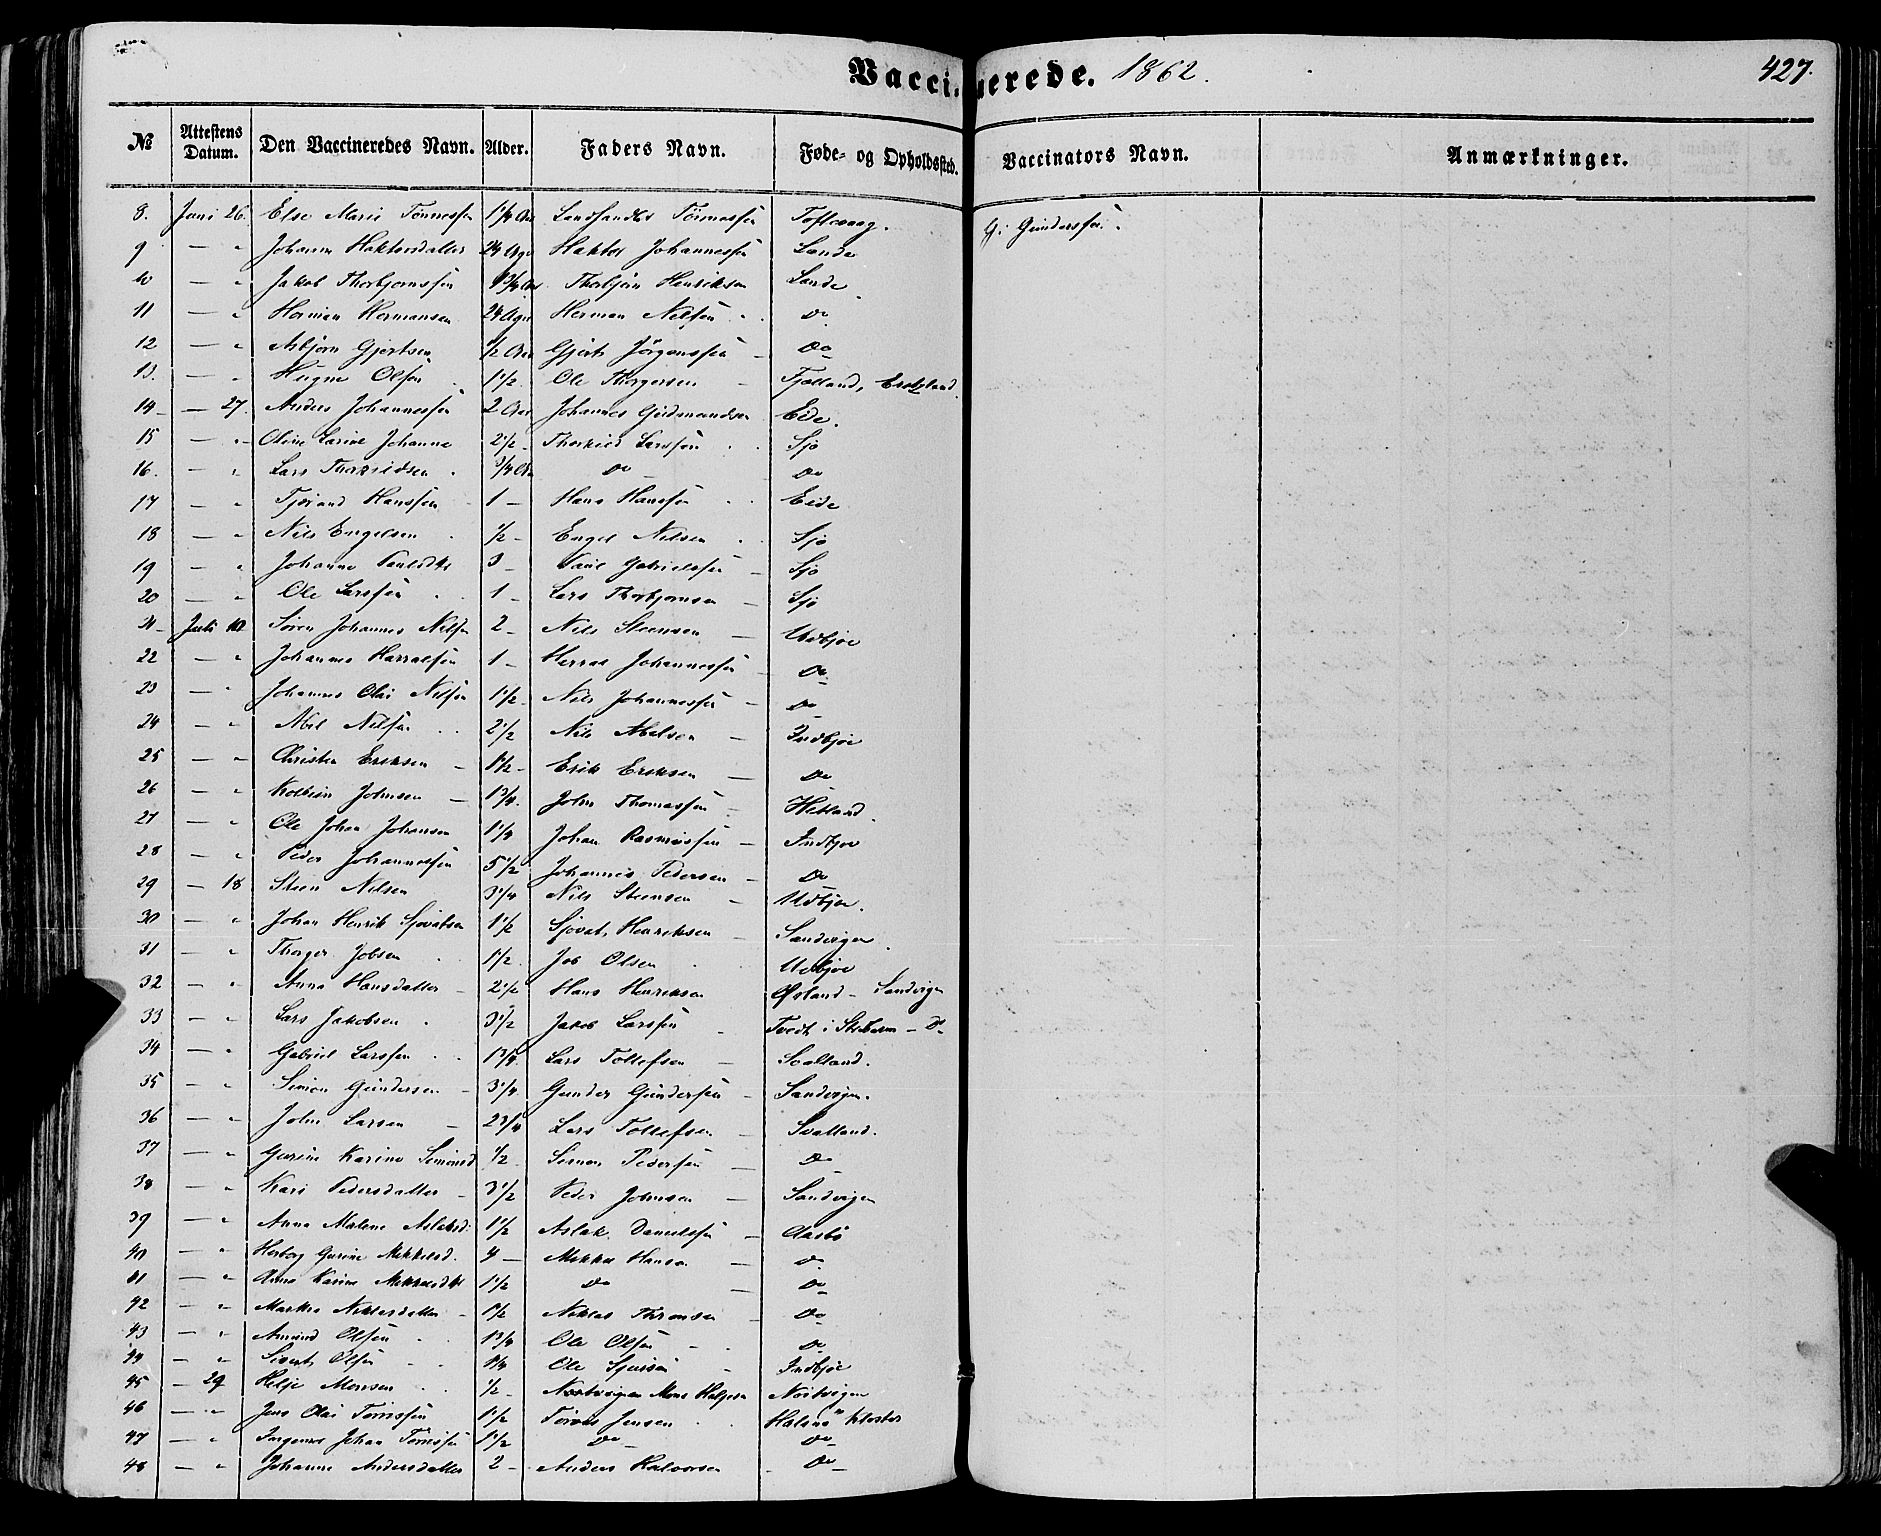 Vaccinerede. 1862.
427.
№ Attestens Datum. Den Vaccineredes Navn. Alder. Faders Navn. Føde- og Opholdssted. Vaccinators Navn. Anmærkninger.
8. Juni 26. Else Marie Tönnessen 1 1/4 Aar Tönnessen Toftevaag. G. Gundersen.
9 — " Johanne Haktorsdatter 24 Haktor Johannessen Lande
10 — " Jakob Thorbjørnssen Thorbjörn Henriksen Lande
11 — " Herman Hermansen 24 Herman Nilsen Do
12 — " Asbjørn Gjertsen 1/2 Aar Gjert Jørgenssen — Do
13. — " Olsen 1 1/2. Ole Thorgersen — Fjælland,
14 — 27. Anders Johannessen 2 Aar Johannes Gudmundsen Eide.
15 — " Oline Larine Johanne 2 1/2 Larssen Sjo
16. — " Lars 3/4 Aar Do — Do
17 — " Tjerand Hanssen 1 — Hans Hanssen Eide
18 — " Nils Engelsen 1/2 — Engel Nilsen Sjo
19 — " Johanne 3 — Paul Gabrielssen — Sjo
20 — " Ole Larssen 1 — Lars Thorbjornsen — Sjo
21 — Juli 10 Søren Johannes Nilsen 2 — Nils Steensen — Udbjoe
22 — " Johannes Harralsen 1 — Herral Johannessen — Do
23 — " Johannes Olai Nilsen 1 1/2 — Nils Johannessen — Do
24 — " Abel Nilsen 2 1/2 Nils Abelsen — Indbjoe
25 — " Christen Eriksen — 1 1/2 — Erik Eriksen — Do
26 — " Kolbein Johnsen — 1 3/4. John Thomassen — Hetland.
27 — " Ole Johan Johansen 1 1/4 Johan Rasmussen — Indbjoe
28 — " Peder Johannessen 5 1/2 Johannes Pedersen — Do
29 — 18 Steen Nilsen 3 1/4 Nils Steensen — Udbjoe.
30 — " Johan Henrik Sjovatsen 1 1/2 Sjovat Henriksen — Sandvigen.
31 — " Thorger Jobsen 1 1/2. Job Olsen Udbjoe
32 — " Anna Hansdatter — 2 1/2 Hans Henriksen Øsland — Sandvigen
33 — " Lars Jakobsen 3 1/2 Jakob Larssen — Tvedt i — Do
34 — " Gabriel Larssen 1 3/4 Lars Tollefsen — Svalland.
35 — " Simon Gundersen — 3 1/4 Gunder Gundersen — Sandvigen.
36 — " John Larsen — 2 3/4 Lars Tollefsen — Svalland.
37 — " Gurine Karine Simonsd 1/2 Simon Pedersen — Do
38 — " Kari Pedersdatter — 3 1/2 Peder Johnsen — Sandvigen
39 — " Anna Malene Aslaksd: 1 1/2 Aslak Danielssen — Aasbø
40 — " Herborg Gurine Mikkelsd. 4 — Mikkel Hansen — Do
41 — " Anna Karine 1 1/2 Do — Do
42 — " Martha Niklasdatter — 1 1/2 Niklas — Do
43 — " Amund Olsen 1 3/4 Ole Olsen Do
44 — " Sivert Olsen Ole — Indbjoe
45 — 29 Helje Monsen 1/2 — Mons Heljesen Nortvigen
46 — " Jens Olai 1 1/2 Jensen Halsnø Kloster
47 — " Johan 1 1/2 Do — Do —
48 — " Johanne Andersdatter 2 — Anders Halvorsen Do —